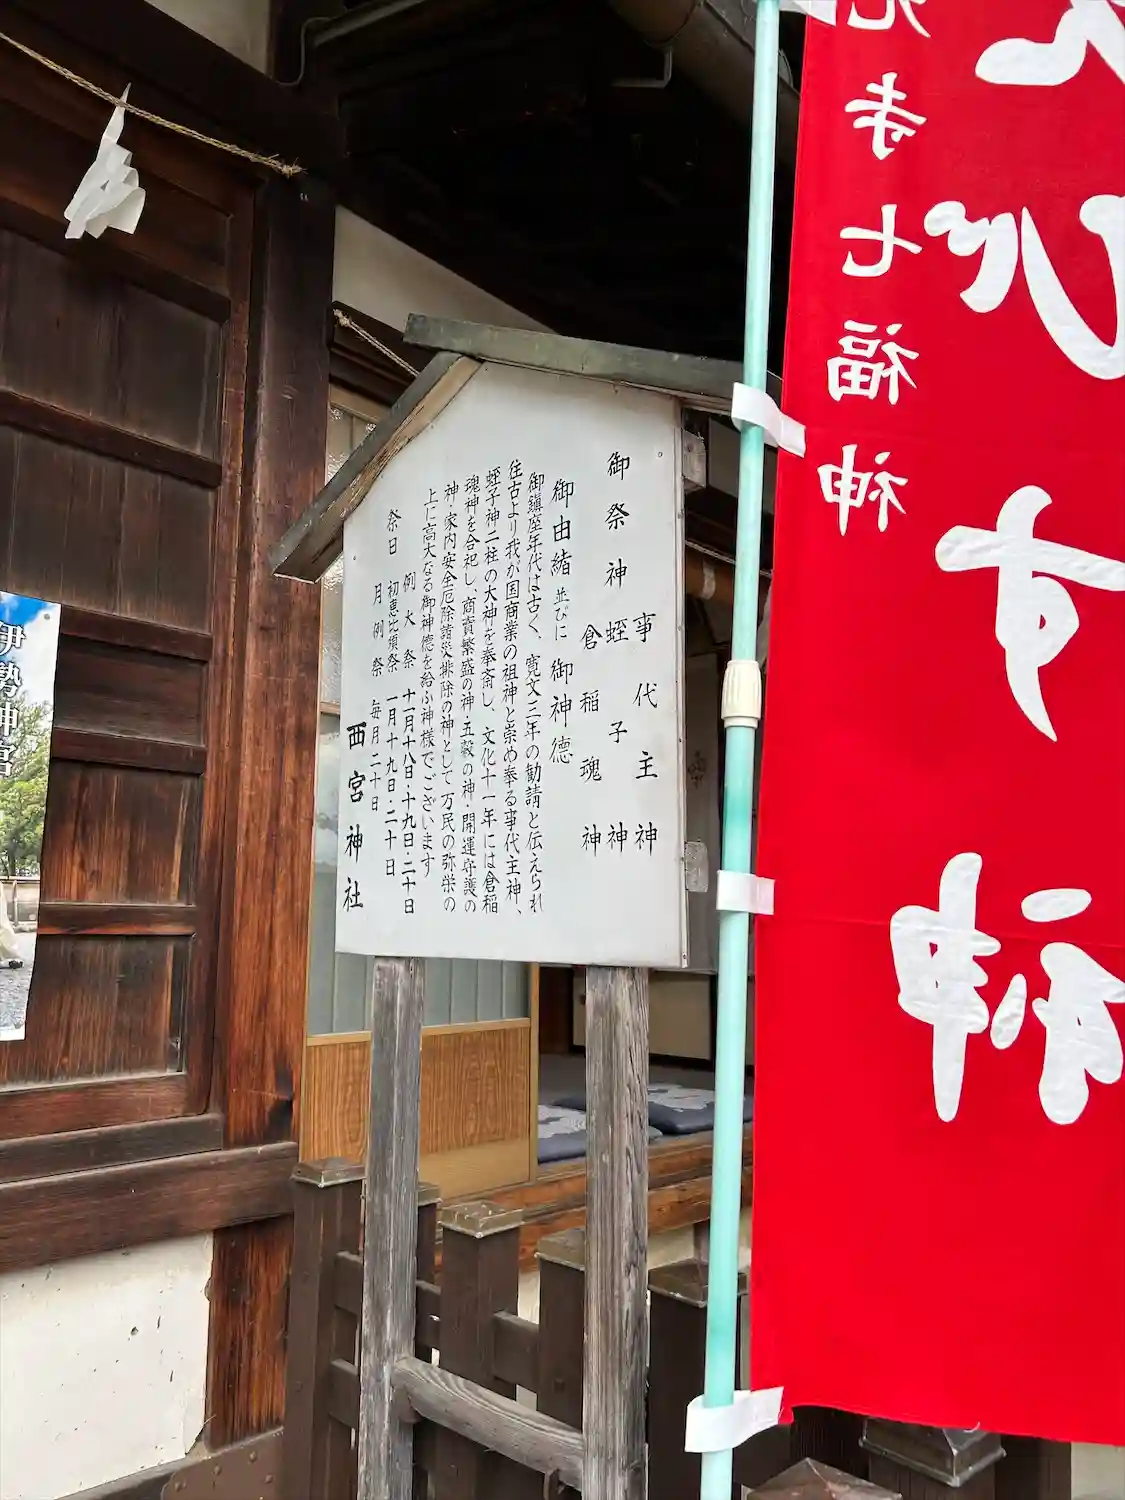 御祭神 事代主神
蛭子神
倉稲魂神
御由緒 並びに 御神徳
御鎮座年代は古く、寛文三年の勧請と伝えられ
往古より我が国商業の祖神と崇め奉る事代主神、
蛭子神二柱の大神を奉斎し、文化十一年には倉稲
魂神を合祀し、商売繁盛の神・五穀の神・開運守護の
神・家内安全厄除諸災排除の神として万民の弥栄の
上に高大なる御神徳を給ふ神様でございます
祭日 例大祭 十一月十八日・十九日・二十日
初恵比須祭 一月十九日・二十日
月例祭 毎月二十日
西宮神社
びす神
光寺七福神
伊勢神宮